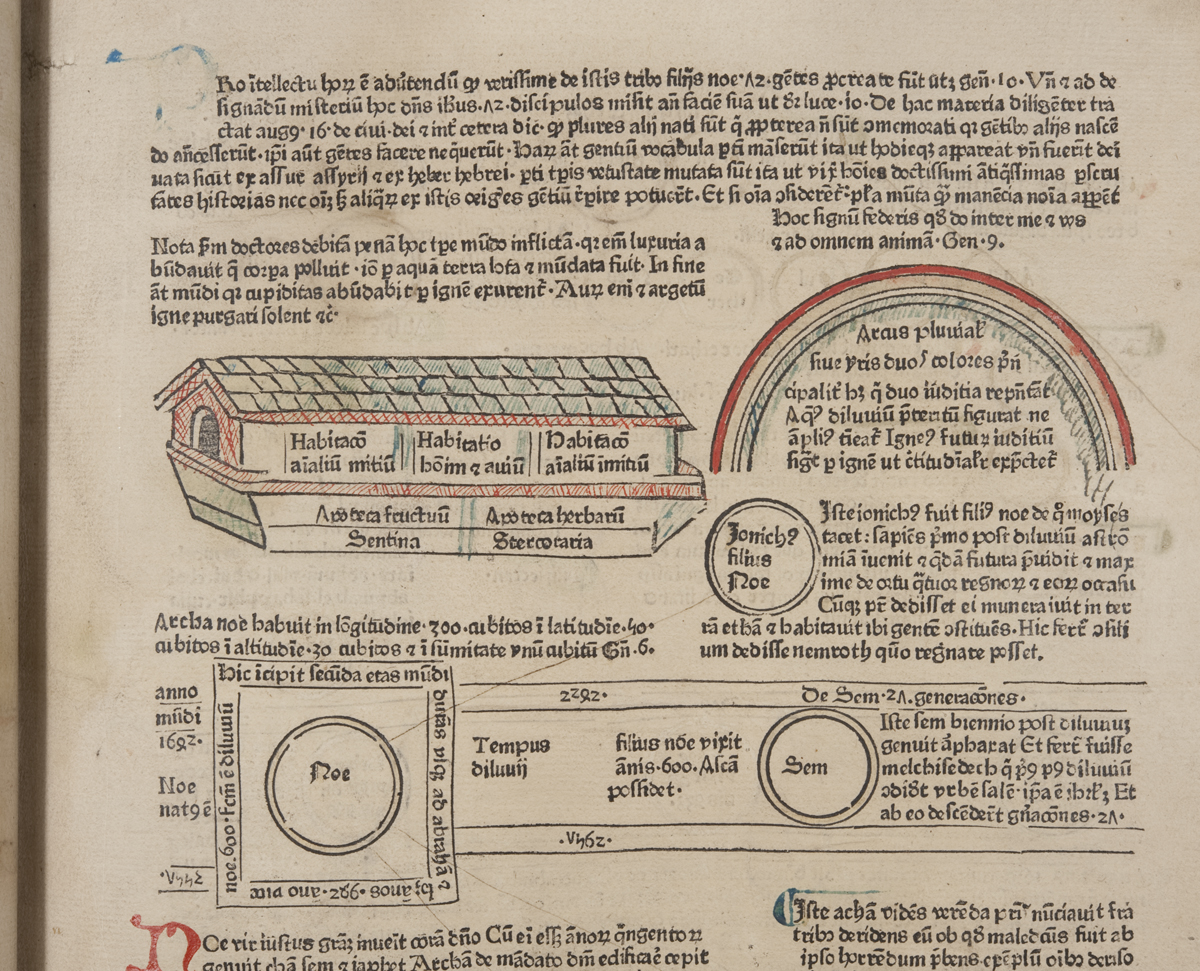 Ro ītellectu hoꝝ ē adu̇tendū qꝫ verissime de istis tribꝫ filijs noe·72·gētes ꝓcreate fūt utꝫ gen̄·10·Vn̄ ⁊ ad de
signādū misteriū hoc dn̄s ih̄us·72·discipulos misit an̄ faciē suā ut dr̄ luce·10·De hac materia diligēter tra
ctat aug9·16·de ciui·dei ⁊ int̄ cetera dic̄· plures alij nati sūt q̄ ꝓpterea n̄ sūt ꝯmemorati qꝛ gētibꝫ alijs nascē
do an̄cesserūt·ip̄i aūt gētes facere nequerūt·Haꝝ āt gentiū vocabula ꝑti māserūt ita ut hodieqꝫ appareat vn̄ fuerīt deri
uata sicut ex assur assyrij ⁊ ex heber hebrei· ꝑti tp̄is vetustate mutata sūt ita ut vix hōies doctissimi ātiq̄ssimas ꝑscru
tātes historias nec oīꝫ sꝫ aliq̄ꝝ ex istis origīes gētiū r̄pire potuerīt·Et si oīa ꝯsiderēt̄·pl̄a mūta qꝫ manēcia noīa appēt
Hoc signū federis qd̄ do inter me ⁊ vos
⁊ ad omnem animā·Gen·9·
Nota ẜm doctores debitā penā hoc tꝑe mūdo inflictā·qꝛ em̄ luxuria a
būdauit q̄ corpa polluit·iō ꝑ aquā terra lota ⁊ mūdata fuit·In fine
āt mūdi qꝛ cupiditas abūdabit ꝑ ignē exurent̄·Auꝝ eni ⁊ argētū
igne purgari solent ⁊c̄·
Arcus pluuial̄
siue yris duos colores p̄n
cipalit̄ hꝫ q̄ duo iūditia rep̄n̄tāt
Aq9 diluuiū p̄teritū figurat ne
āpli9 tīeat̄ Igne9 futuꝝ iūditiū
ꝑ ignē ut
Habitacō
aīaliū mitiū
Habitatio
hoīm ⁊ auiū
Habitacō
aīaliū īmitiū
Apoteca fructuū
Apoteca herbarū
Sentina
Stercoraria
Jonich9
filius
Noe
Iste ionich9 fuit fili9 noe de q̊ moyses
tacet: sapiēs p̄mo post diluuiū astro
miā īuenit ⁊ q̄dā futura p̄uidit ⁊ max
ime de ortu q̄tuor regnoꝝ ⁊ eoꝝ occasu
Cūqꝫ pr̄ dedisset ei munera iuit in ter
rā ethā ⁊ habitauit ibi gentē ꝯstituēs·Hic fert̄ ꝯsili
um dedisse nemroth quō regnare posset.
Archa noe habuit in lōgitudine·300·cubitos ī latitudīe·50·
cubitos ī altitudīe·30 cubitos ⁊ ī sūmitate vnū cubitū Gn̄·6·
Hic īcipit secūda etas mūdi
durās vsqꝫ ad abrahā ⁊
hꝫ annos·292· Ano
noe·600·fcm̄ ē diluuiū
anno
mūdi
1692·
Noe
nat9 ē
Noe
2292·
De Sem·27·generacōnes·
Tempus
diluuij
filius nōe vixit
ānis·600·Ascā
possidet·
Sem
Iste sem biennio post diluuiuꝫ
genuit āphaxat Et fert̄ fuisse
melchisedech q̄ p9 diluuiū
ꝯdidit vrbē salē·ip̄a ē ih̄rl̄ꝫ Et
ab eo descēderūt gn̄acōnes·27·
Oe vir iustus grām inueīt corā dn̄o Cū ei eēt annoꝝ q̄ngentoꝝ
genuit chā sem ⁊ iaphet Archā de mādato dm̄ edificare cepit
Iste achā vidēs verēda pr̄is nūciauit fra
tribꝫ deridens eū ob qd̄ maledcūs fuit ab
ipso horrēdum p̄bens exēplū oībꝫ deriso